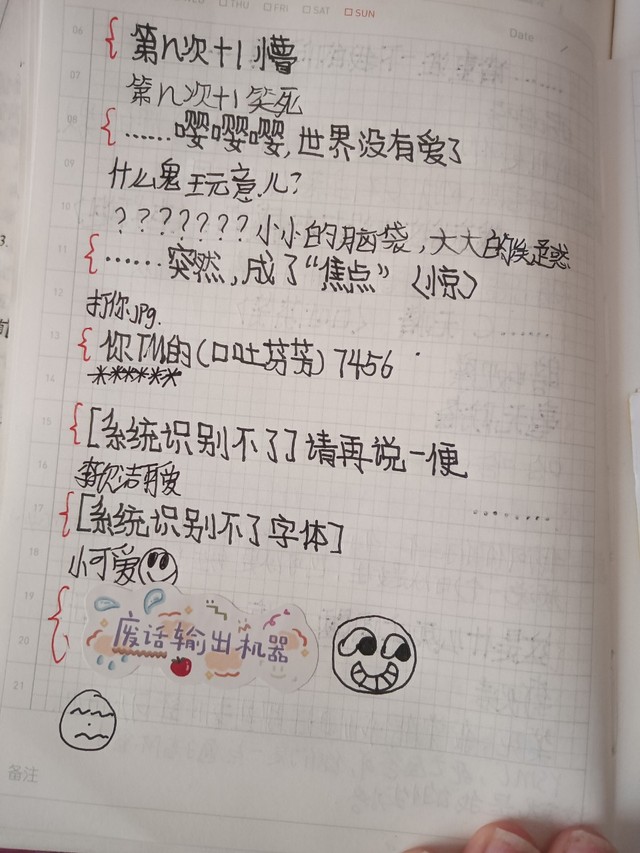 THU FRI SAT SUN
Date
06 第n次+1 懵
07 第n次+1 笑死
08 ……嘤嘤嘤,世界没有爱了
09 什么鬼玩意儿?
10 ???????小小的脑袋,大大的疑惑
11 ……突然,成了“焦点”(惊)
12 打你.jpg.
13 你TM的(口吐芬芳)7456
14 ******
15 [系统识别不了]请再说一便
16
17 [系统识别不了字体]
18 小可爱
19 废话输出机器
20
21
备注